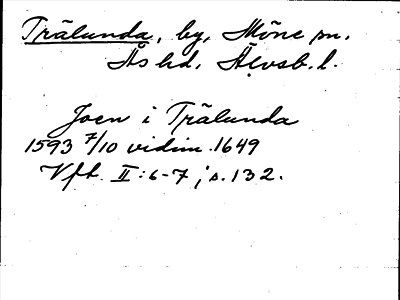 Trälunda, by, Möne sn.
Ås hd, Älvsb. l.
Joen i Trälunda
1593 7/10 vidim. 1649
Vft. II:6-7, s. 132.